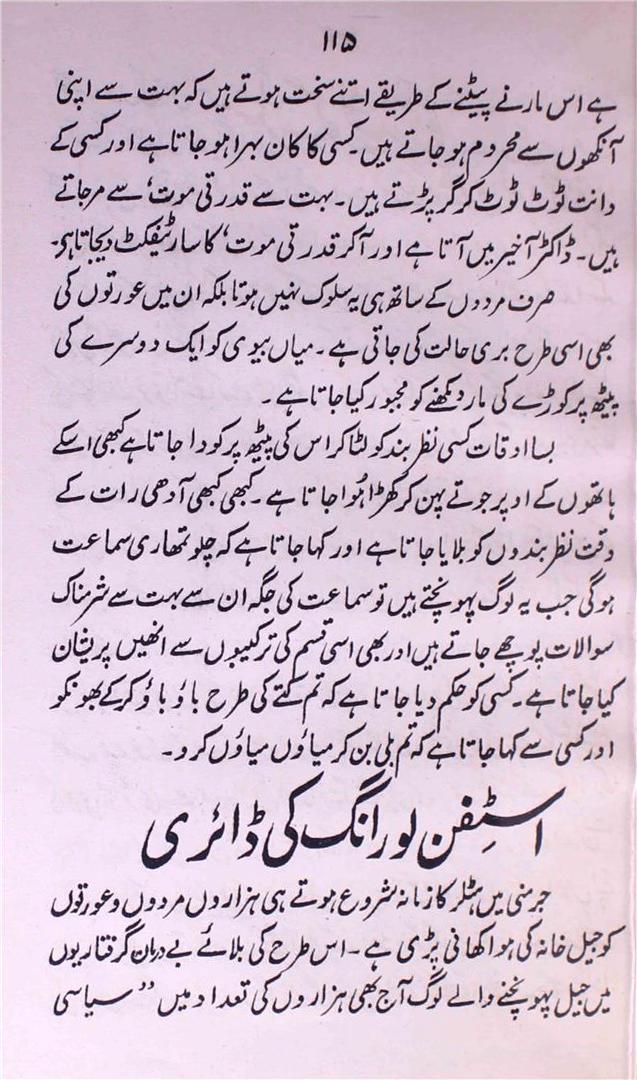 ۱۱۵
ہے اس مارنے پیٹنے کے طریقے اتنے سخت ہوتے ہیں کہ بہت سے اپنی
آنکھوں سے محروم ہو جاتے ہیں۔ کسی کا کان بہرا ہو جاتا ہے اور کسی کے
دانت ٹوٹ ٹوٹ کر گر پڑتے ہیں۔ بہت سے قدرتی موت، سے مر جاتے
ہیں۔ ڈاکٹر آخیر میں آتا ہے اور آکر قدرتی موت، کا سارٹیفکٹ دیجاتا ہی۔
صرف مردوں کے ساتھ ہی یہ سلوک نہیں ہوتا بلکہ ان میں عورتوں کی
بھی اسی طرح بری حالت کی جاتی ہے۔ میاں بیوی کو ایک دوسرے کی
پیٹھ پر کوڑے کی مار دیکھنے کو مجبور کیا جاتا ہے۔
بسا اوقات کسی نظر بند کو لٹا کر اس کی پیٹھ پر کودا جاتا ہے کبھی اسکے
ہاتھوں کے اوپر جوتے پہن کر کھڑا ہُوا جاتا ہے۔ کبھی کبھی آدھی رات کے
وقت نظر بندوں کو بلایا جاتا ہے اور کہا جاتا ہے کہ چلو تمھاری سماعت
ہوگی جب یہ لوگ پہونچتے ہیں تو سماعت کی جگہ ان سے بہت سے شرمناک
سوالات پوچھے جاتے ہیں اور بھی اسی قسم کی ترکیبوں سے انھیں پریشان
کیا جاتا ہے۔ کسی کو حکم دیا جاتا ہے کہ تم کتے کی طرح باؤ باؤ کرکے بھونکو
اور کسی سے کہا جاتا ہے کہ تم بلی بن کر میاؤں میاؤں کرو۔
اسٹِفن لورانگ کی ڈائری
جرمنی میں ہٹلر کا زمانہ شروع ہوتے ہی ہزاروں مردوں و عورتوں
کو جیل خانہ کی ہوا کھانی پڑی ہے۔ اس طرح کی بلائے بے درمان گرفتاریوں
میں جیل پہونچنے والے لوگ آج بھی ہزاروں کی تعداد میں ”سیاسی